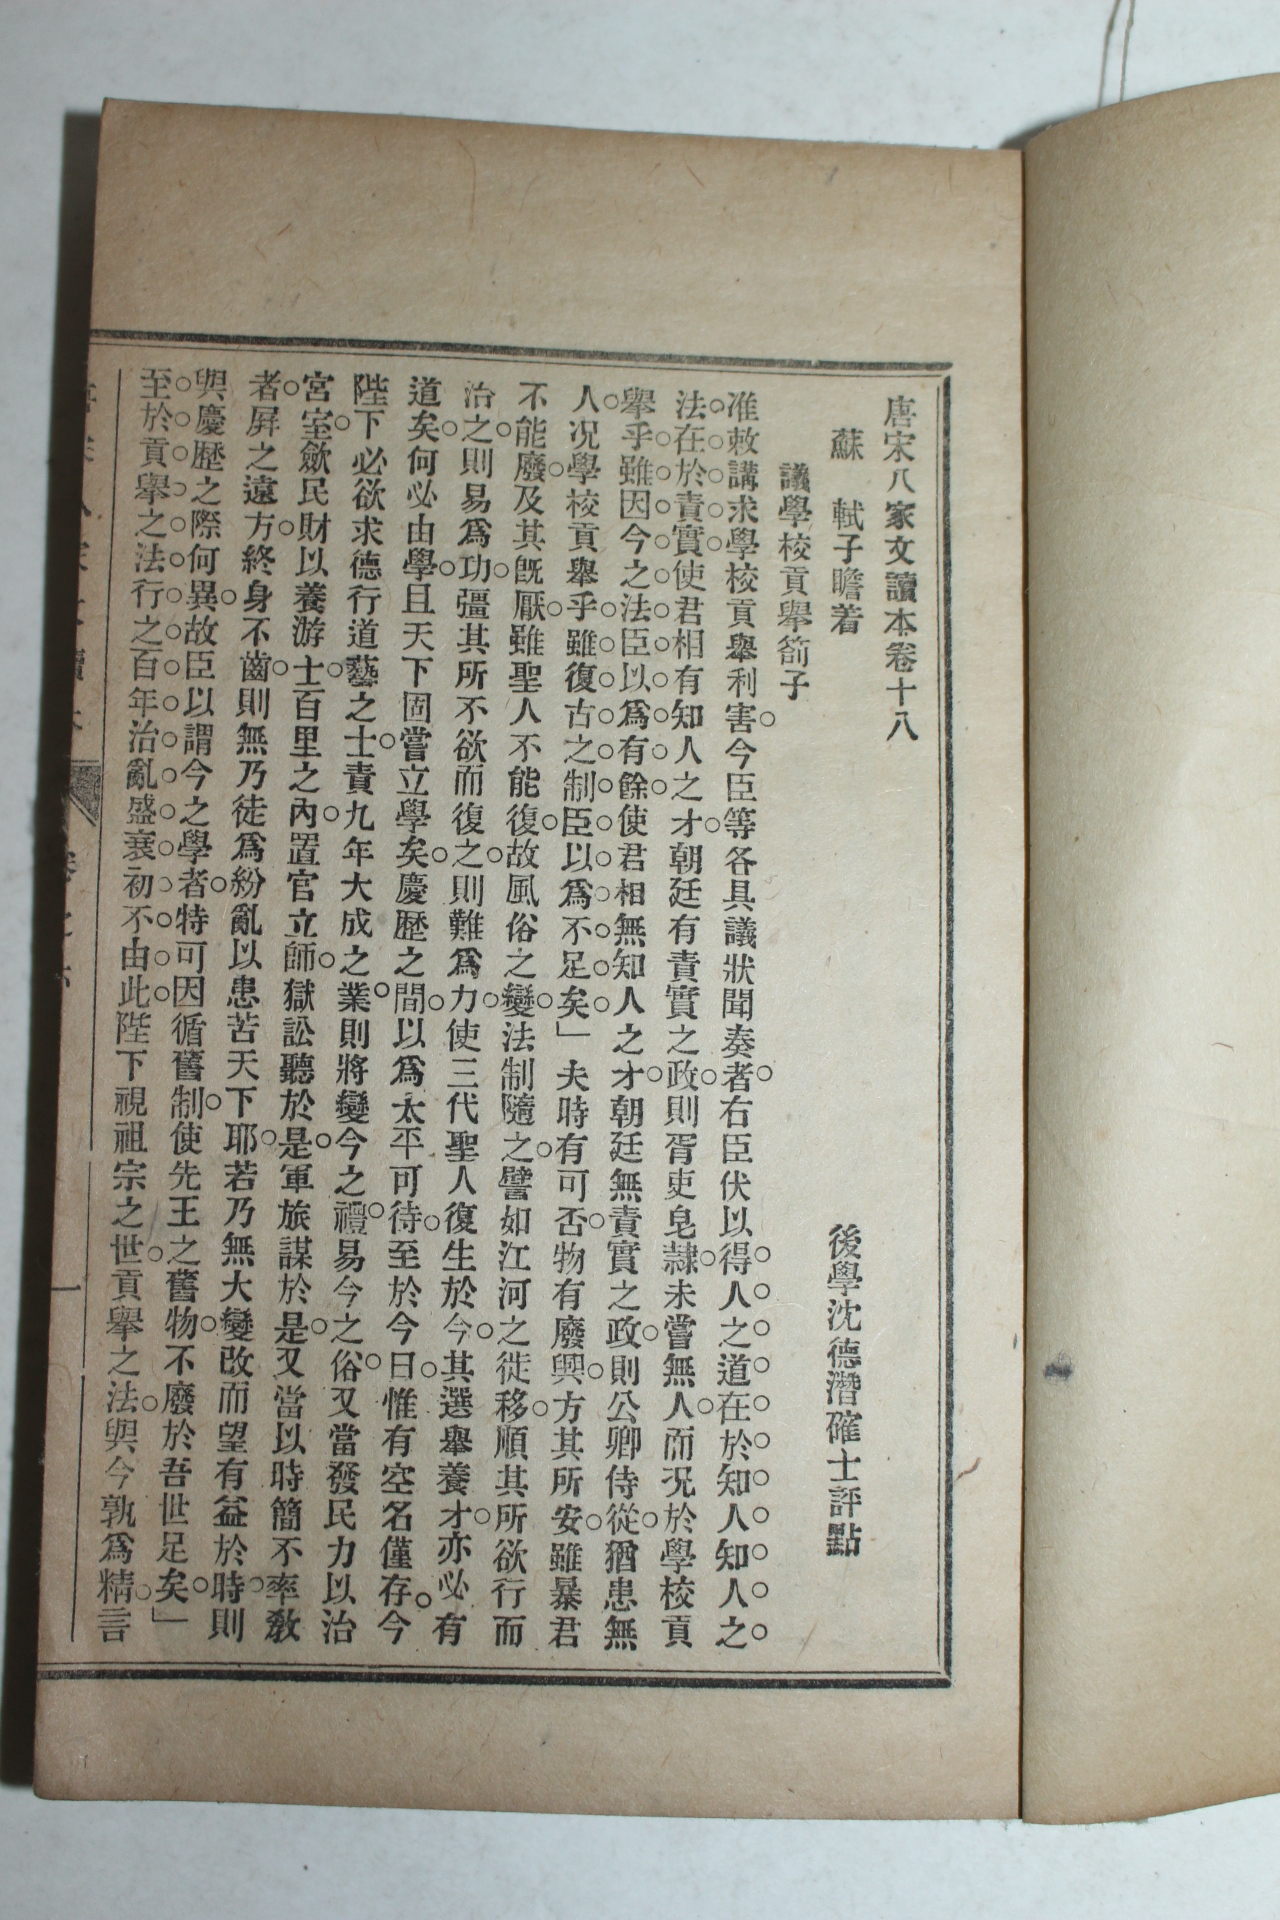 唐宋八家文讀本卷十八
蘇　軾子瞻着　後學沈德潛確士評點
議學校貢舉箚子
准敕講求學校貢舉利害今臣等各具議狀聞奏者右臣伏以得人之道在於知人知人之
法在於責實使君相有知人之才朝廷有責實之政則胥吏皂隷未嘗無人而況於學校貢
舉乎雖因今之法臣以爲有餘使君相無知人之才朝廷無責實之政則公卿侍從猶患無
人况學校貢舉乎雖復古之制臣以爲不足矣」夫時有可否物有廢興方其所安雖暴君
不能廢及其旣厭雖聖人不能復故風俗之變法制隨之譬如江河之徙移順其所欲行而
治之則易爲功彊其所不欲而復之則難爲力使三代聖人復生於今其選舉養才亦必有
道矣何必由學且天下固嘗立學矣慶歷之間以爲太平可待至於今日惟有空名僅存今
陛下必欲求德行道藝之士責九年大成之業則將變今之禮易今之俗又當發民力以治
宮室歛民財以養游士百里之內置官立師獄訟聽於是軍旅謀於是又當以時簡不率敎
者屛之遠方終身不齒則無乃徒爲紛亂以患苦天下耶若乃無大變改而望有益於時則
與慶歷之際何異故臣以謂今之學者特可因循舊制使先王之舊物不廢於吾世足矣」
至於貢舉之法行之百年治亂盛衰初不由此陛下視祖宗之世貢舉之法與今孰爲精言
卷之六
一